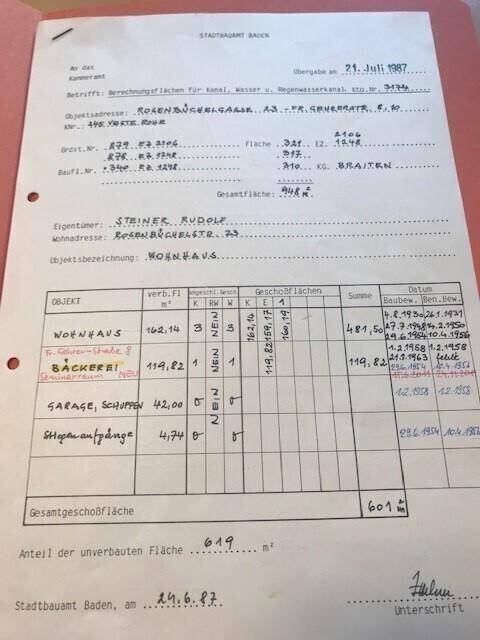 STADTBAUAMT BADEN
An das
Kammeramt
Übergabe am 21. Juli 1987
Betrifft: Berechnungsflächen für Kanal, Wasser u. Regenwasserkanal. Kto.Nr.
Objektsadresse: ROSENBÜCHELGASSE 23 - FR. GEHRERSTR. 8, 10
KNr.:
2106
Grdst.Nr. 879 EZ 2106 Fläche 321 EZ. 1248
878 EZ 1248 317
Baufl.Nr. .340 EZ 1248 310 KG. BRAITEN
Gesamtfläche: 948 m²
Eigentümer: STEINER RUDOLF
Wohnadresse: ROSENBÜCHELSTR. 23
Objektsbezeichnung: WOHNHAUS
OBJEKT verb.Fl m² angeschl.Gesch. Geschoßflächen Summe Datum
K RW W K E 1 Baubew. Ben.Bew.
WOHNHAUS 162,14 3 NEIN 3 162,14 159,17 160,19 481,50 4.8.1930 26.1.1931
27.7.1948 14.2.1950
29.6.1954 10.4.1956
Fr. Gehrer-Straße 8
BÄCKEREI 119,82 1 NEIN 1 119,82 119,82 1.2.1958 1.2.1958
21.1.1963 fehlt
29.6.1954 10.4.1956
Seminarraum NEU
GARAGE, SCHUPPEN 42,00 0 NEIN 0 1.2.1958 1.2.1958
Stiegenaufgänge 4,74 0 0 29.6.1954 10.4.1956
Gesamtgeschoßfläche 601 m²
Anteil der unverbauten Fläche 619 m²
Stadtbauamt Baden, am 24.6.87
Unterschrift